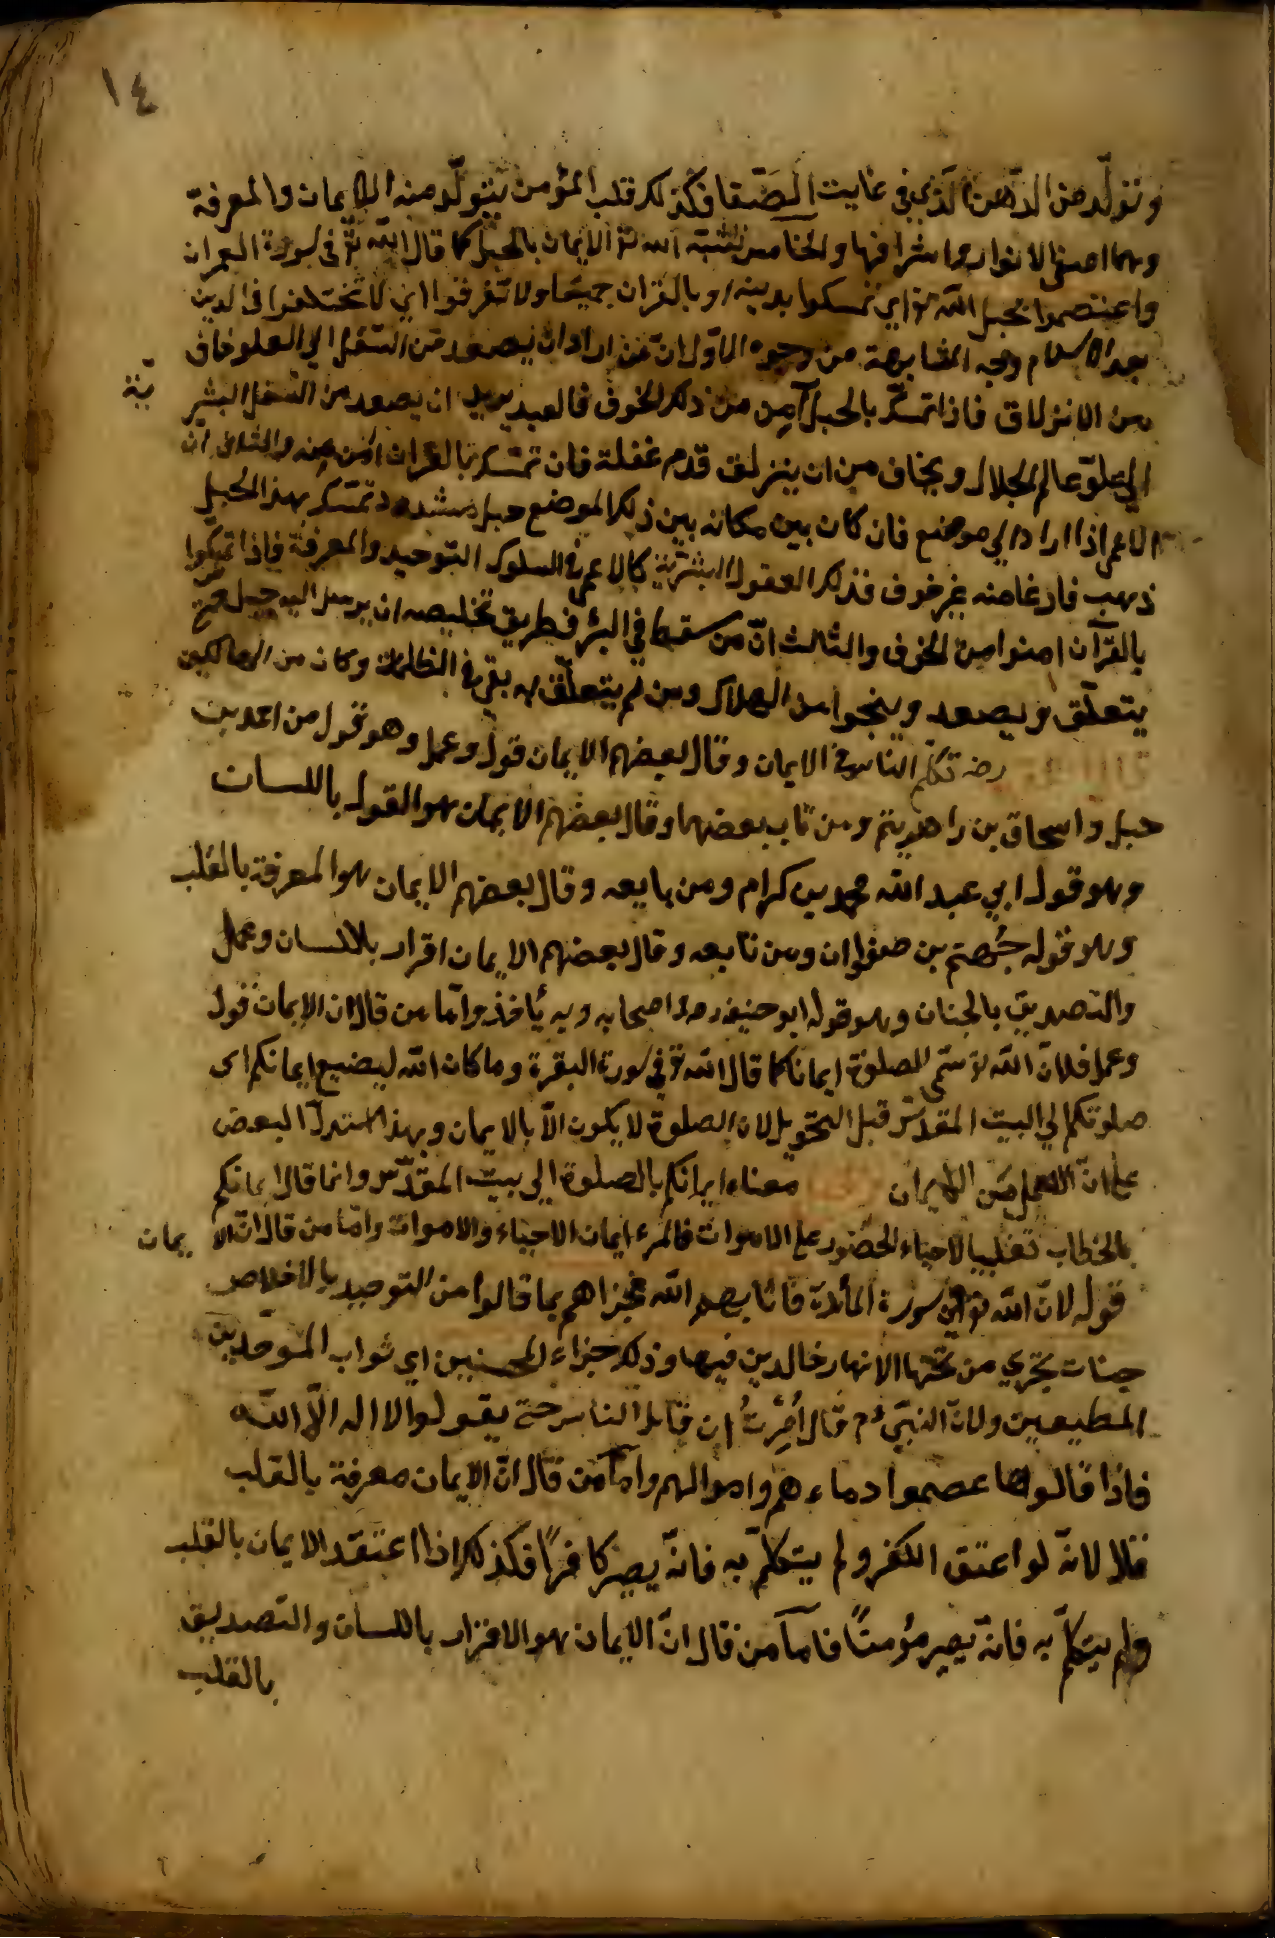 ١٤
وتتولّد من الدّهن الّذي في غايت الصّفا فكذلك قلب المؤمن يتولّد منه الايمان والمعرفة
وهما اصفى الانوار واشرافها والخامس شبّه الله تع الايمان بالحبل كما قال الله تع في سورة العمران
واعتصموا بحبل الله تع اي تمسكوا بدينه او بالقران جميعًا ولا تفرقوا اي لا تختلفوا في الدين
بعد الاسلام وجه المشابهة من وجوه الاوّل انّ من اراد ان يصعد من السّفل الي العلو خاف
من الانزلاق فاذا تمسّك بالحبل آمِن من ذلك الخوف فالعبد يريد ان يصعد من السفل البشر يّة
الي علوّ عالم الجلال ويخاف من ان ينزلق قدم غفلة فان تمسّك بالقرآن امن منه والثاني ان
الاعمى اذا اراد الي موضع فان كان بين مكانه بين ذلك الموضع حبل مشدود تمسّك بهذا الحبل
ذهب فارغا منه غير خوف فذلك العقول البشريّة كالاعمى في السلوك التوحيد والمعرفة فاذا تمسّكوا
بالقرآن امنوا من الخوف والثالث انّ من سقط في البئر فطريق تخليصه ان يرسل اليه حبل حتى
يتعلّق ويصعد وينجوا من الهلاك ومن لم يتعلّق به بقي في الظلمات وكان من الهالكين
رضه تكلّم الناس في الايمان وقال بعضهم الايمان قول وعمل وهو قول من احمد بن
حبل واسحاق بن راهويتم ومن تاب بعضهما وقال بعضهم الايمان هو القول باللسان
وهو قول ابي عبد الله محمد بن كرام ومن بايعه وقال بعضهم الايمان هو المعرفة بالقلب
وهو قول جُهتم بن صفوان ومن تابعه وقال بعضهم الايمان اقرار باللسان وعمل
والتصديق بالجنان وهو قول ابو حنيفه رحه واصحابه وبه يأخذ وامّا من قال ان الايمان قول
وعمل فلانّ الله تع سمّى الصلوة ايمانا كما قال الله تع في سورة البقرة وما كان الله ليضيع ايمانكم اى
صلوتكم الي البيت المقدّس قبل التحويل لان الصلوة لا يكون الاّ بالايمان وبهذا استدلّ البعض
على انّ العمل من الايمان معناه ايمانكم بالصلوة الى بيت المقدّس وانما قال ايمانكم
بالخطاب تغليبا لاحياء الحضور على الاموات فالمرء ايمان الاحياء والاموات وامّا من قال انّ الا يمان
قول لانّ الله تع في سورة المائدة فاثابهم الله فجزاهم بما قالوا من التوحيد بالاخلاص
جنات تجري من تحتها الانهار خالدين فيها وذلك جزاء المحسنين اي ثواب الموحّدين
المطيعين ولانّ النبيّ ءم قال اُمِرْتُ ان قاتل الناس حتى يقولوا لا اله الاّ الله
فاذا قالوها عصموا دماءهم واموالهم وامّا من قال انّ الايمان معرفة بالقلب
فلا لانّه لو اعتق الكفر ولم يتكلّم به فانّه يصير كافرًا فكذلك اذا اعتقد الايمان بالقلب
ولم يتكلّم به فانّه يصير مؤمنًا فامّا من قال انّ الايمان هو الاقرار باللسان والتصديق
بالقلب